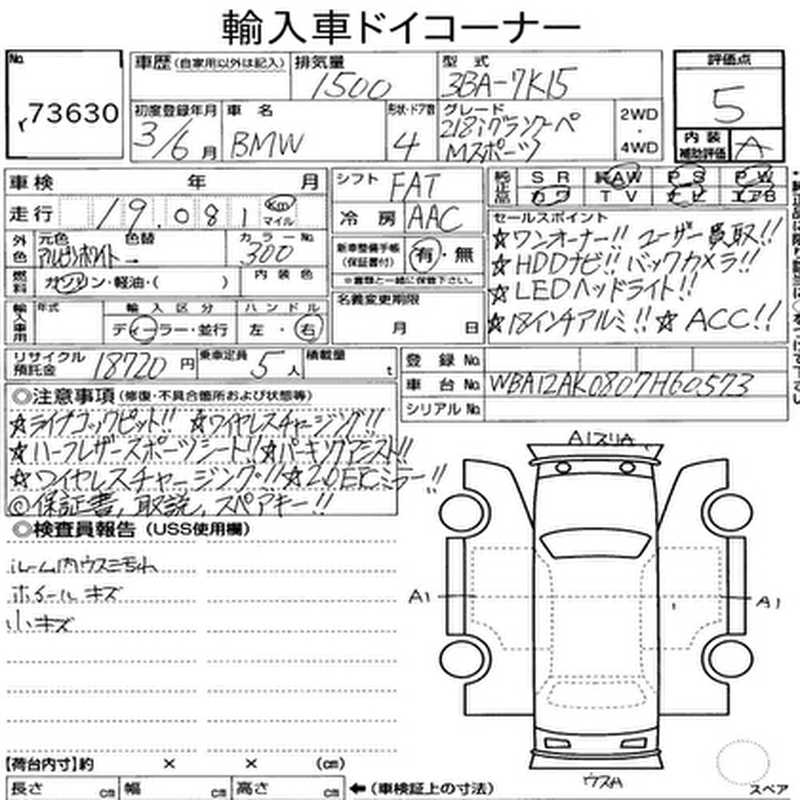 輸入車ドイコーナー
No. 73630
車歴 (自家用以外は記入) 排気量 1500 型式 3BA-7K15
初度登録年月 3/6月 車名 BMW 形状・ドア数 4 グレード 218iグランクーペ Mスポーツ 2WD・4WD
評価点 5
内装補助評価 A
車検 年 月
走行 19.081 Km マイル
外色 元色 アルピンホワイト 色替 → カラーNo. 300
燃料 ガソリン・軽油・( ) 内装色
輸入車用 年式 輸入区分 ディーラー・並行 ハンドル 左・右
シフト FAT
冷房 AAC
新車整備手帳 (保証書付) 有・無
※書類と一緒に保管下さい。
名義変更期限 月 日
純正品 SR 純AW PS PW
カワ TV ナビ エアB
セールスポイント
☆ワンオーナー!! ユーザー買取!!
☆HDDナビ!! バックカメラ!!
☆LEDヘッドライト!!
☆18インチアルミ!! ☆ACC!!
リサイクル預託金 18720円 乗車定員 5人 積載量 t
登録No.
車台No. WBA12AK0807H60573
シリアルNo.
◎注意事項 (修復・不具合箇所および状態等)
☆ライブコックピット!! ☆ワイヤレスチャージング!!
☆ハーフレザースポーツシート!! ☆パーキングアシスト!!
☆ワイヤレスチャージング!! ☆2.0ETCミラー!!
◎保証書,取説,スペアキー!!
◎検査員報告 (USS使用欄)
ルーム内ウスミ汚れ
ホイールキズ
小キズ
A1スリA
A1
A1
ウスA
スペア
【荷台内寸】約 × × (cm)
長さ cm 幅 cm 高さ cm ←(車検証上の寸法)